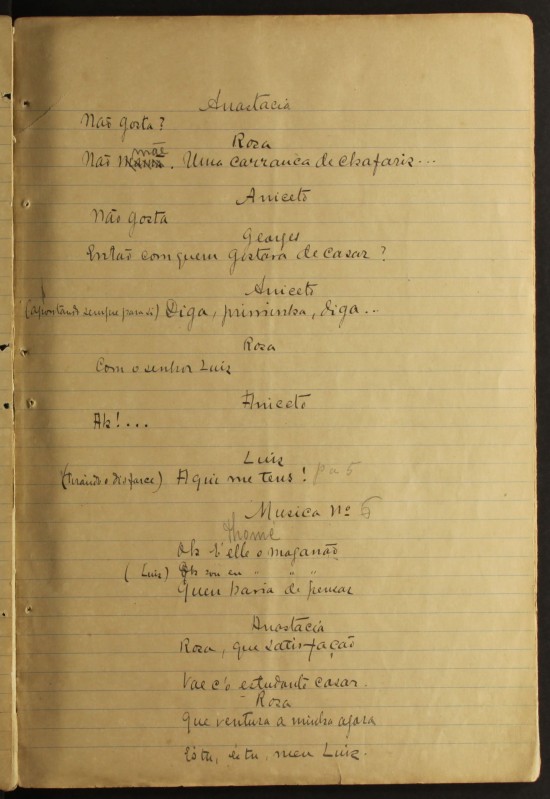 Anastacia
Não gosta?
Rosa
Não mãe. Uma carranca de chafariz...
Aniceto
Não gosta
Georges
Então com quem gostará de casar?
Aniceto
(apontando sempre para si) Diga, priminha, diga...
Rosa
Com o senhor Luiz
Aniceto
Ah!...
Luiz
(tirando o disfarce) Aqui me tens! pa 5
Musica nº 6
Thomé
Oh é elle o maganão
(Luiz) Oh sou eu " " "
Quem havia de pensar
Anastacia
Rosa, que satisfação
Vae c'o estudante casar.
Rosa
Que ventura a minha agora
És tu, és tu, meu Luiz.